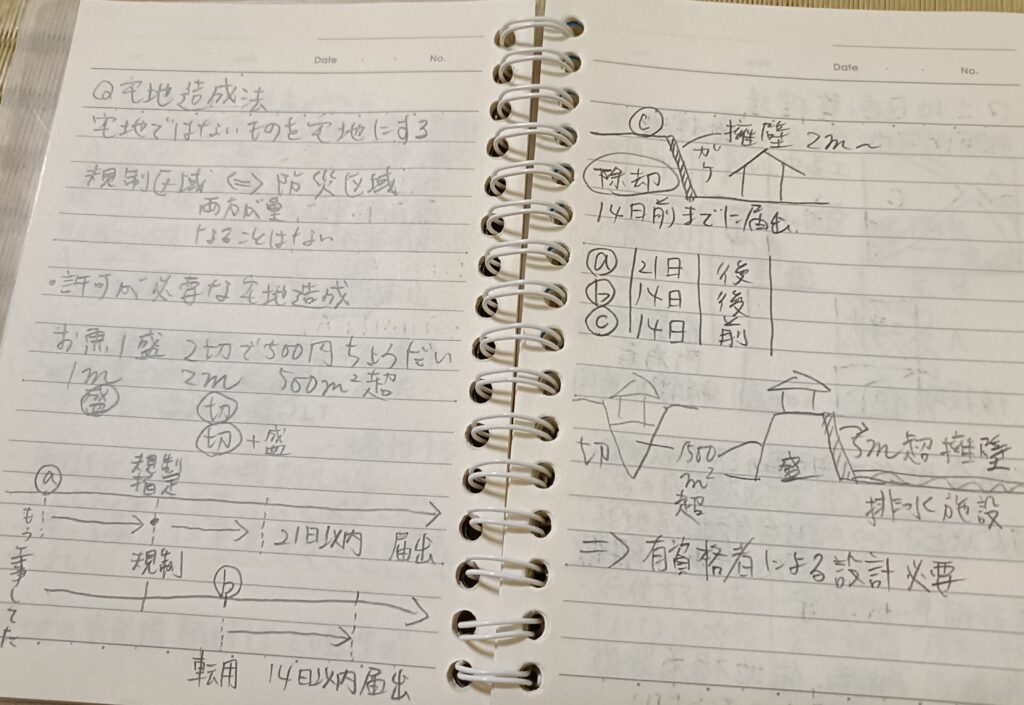 Date . . No.
Q宅地造成法
宅地ではないものを宅地にする
規制区域 ⇔ 防災区域
両方が重
なることはない
・許可が必要な宅地造成
お魚1盛 2切で500円ちょうだい
1m 2m 500m²超
盛 切
切+盛
ⓐ 規制
指定
もう工事してた
21日以内 届出
規制 ⓑ
転用 14日以内届出
Date . . No.
ⓒ 擁壁 2m~
がけ
除却
14日前までに届出
ⓐ 21日 後
ⓑ 14日 後
ⓒ 14日 前
切 1500 盛 5m超擁壁
m²
超 排水施設
⇒ 有資格者による設計必要